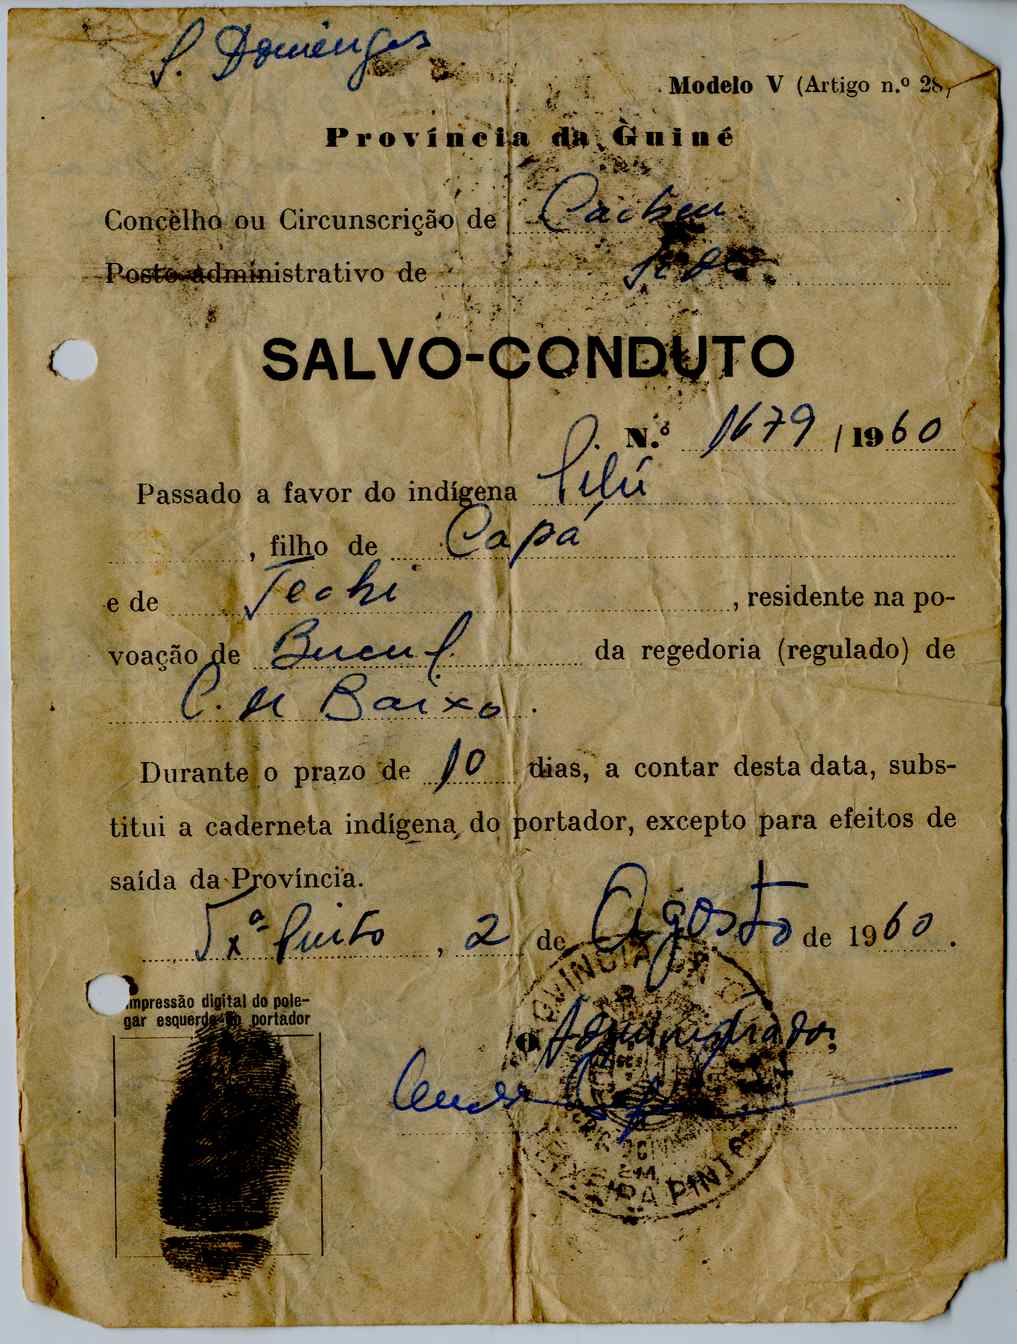 S. Domingos
Modelo V (Artigo n.º 28)
Província da Guiné
Concelho ou Circunscrição de Cacheu
Posto administrativo de Sede
SALVO-CONDUTO
N.º 1679 / 1960
Passado a favor do indígena
, filho de Capá
e de Techi , residente na po-
voação de Bucul da regedoria (regulado) de
C. de Baixo .
Durante o prazo de 10 dias, a contar desta data, subs-
titui a caderneta indígena do portador, excepto para efeitos de
saída da Província.
Tx.ª Pinto , 2 de Agosto de 1960 .
Impressão digital do pole-
gar esquerdo do portador
O Administrador,
PROVÍNCIA DA
EM
TEIXEIRA PINTO